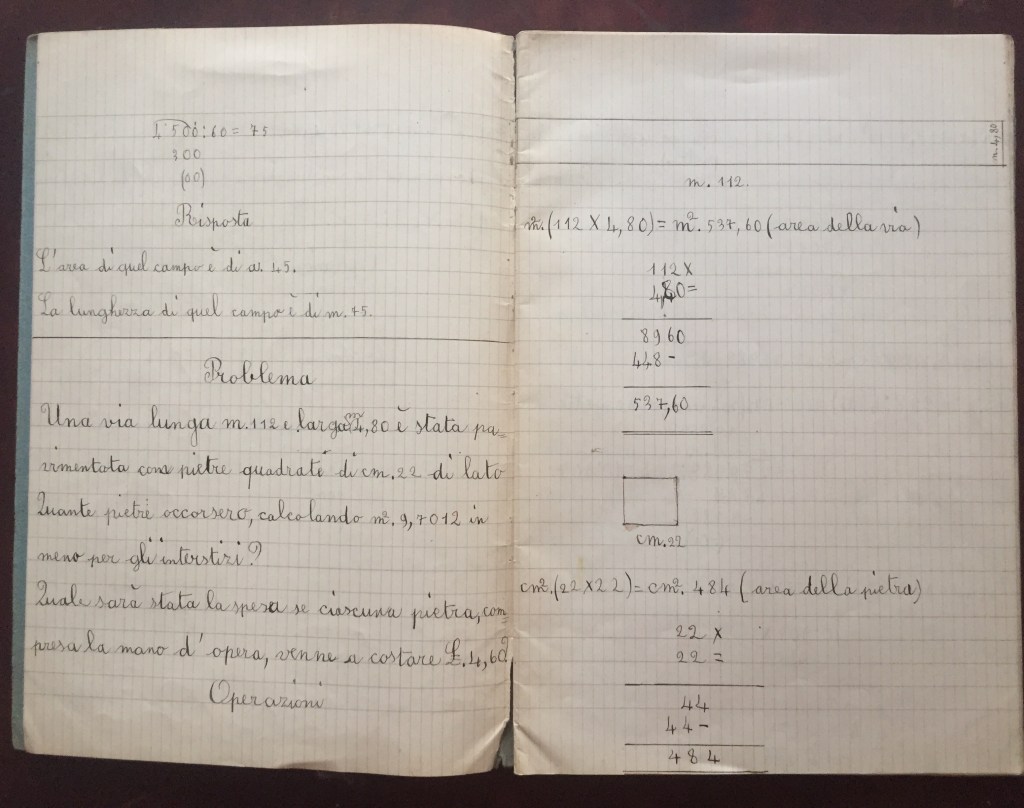 4500:60= 75
300
(00)
Risposta
L'area di quel campo è di a. 45.
La lunghezza di quel campo è di m. 75.
Problema
Una via lunga m. 112 e larga m 4,80 è stata pa=
vimentata con pietre quadrate di cm. 22 di lato
Quante pietre occorsero, calcolando m². 9,7012 in
meno per gli interstizi?
Quale sarà stata la spesa se ciascuna pietra, com=
presa la mano d'opera, venne a costare £. 4,60?
Operazioni
m. 4,80
m. 112.
m². (112 X 4,80) = m². 537,60 (area della via)
112 X
4,80=
8960
448-
537,60
cm. 22
cm². (22 X 22) = cm². 484 (area della pietra)
22 X
22 =
44
44-
484